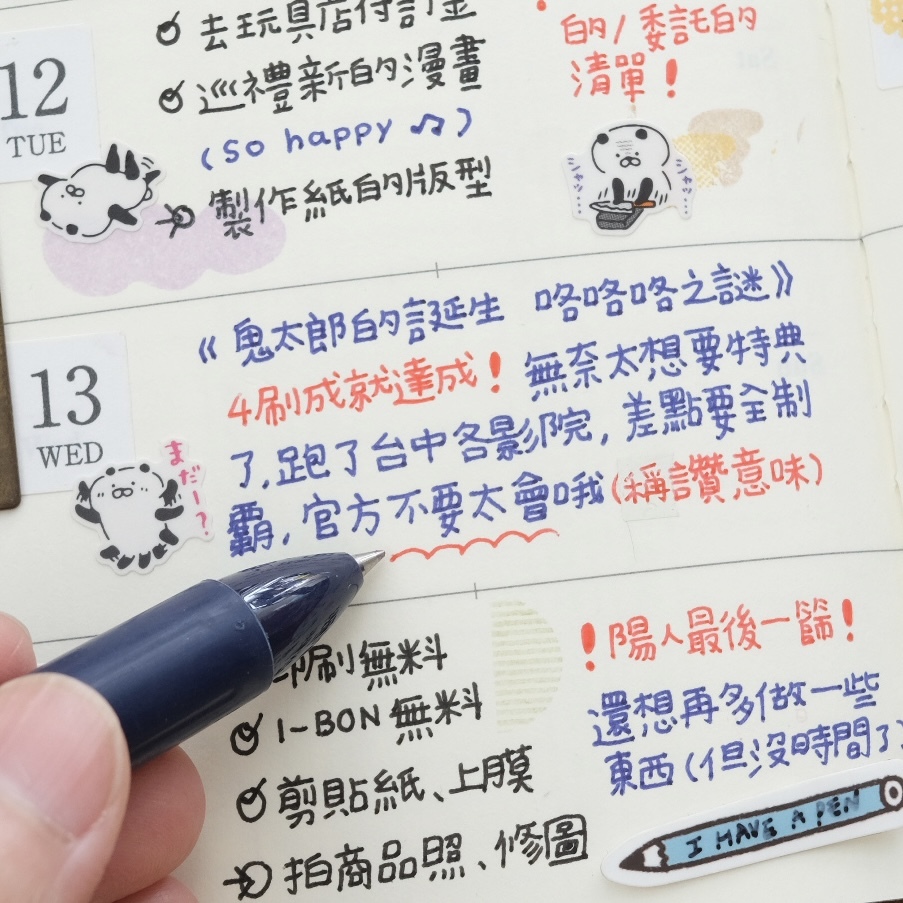 去玩具店付訂金
巡禮新的漫畫
(so happy ♫)
製作紙的版型
的/委託的
清單！
12
TUE
シャッ
シャッ…
13
WED
まだー？
《鬼太郎的誕生 咯咯咯之謎》
4刷成就達成！無奈太想要特典
了,跑了台中各影院,差點要全制
霸,官方不要太會哦(稱讚意味)
印刷無料
I-BON無料
剪貼紙、上膜
拍商品照、修圖
！陽人最後一篩！
還想再多做一些
東西(但沒時間了)
I HAVE A PEN